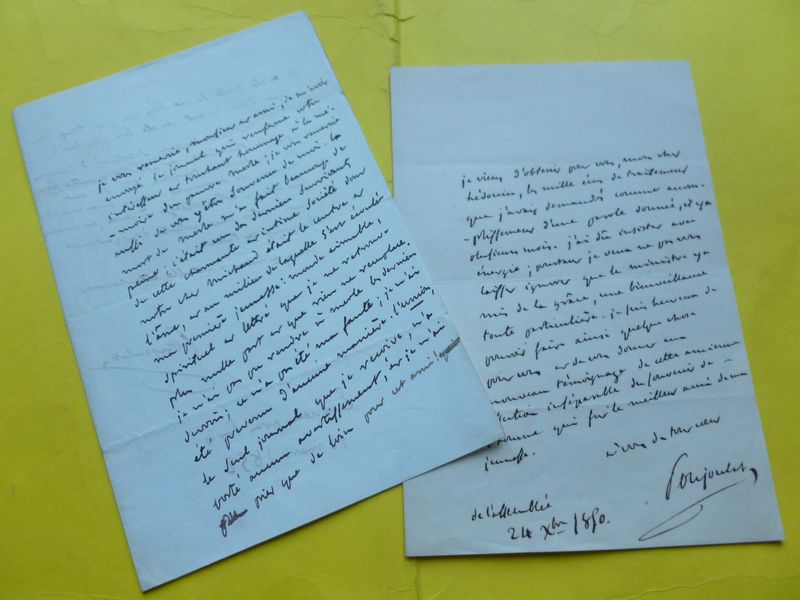 je vous remercie, monsieur et ami, de m'avoir
envoyé le journal qui renferme votre
intéressant et touchant hommage à la mé-
-moire du pauvre merle; je vous remercie
aussi de vous être souvenu de moi. la
mort de merle m'a fait beaucoup de
peine; c'était un des derniers survivants
de cette charmante et intime société dont
notre cher michaud était le centre et
l'âme, et au milieu de laquelle s'est écoulée
ma première jeunesse: monde aimable,
spirituel et lettré que je ne retrouve
plus nulle part et que rien ne remplace.
je n'ai pu rendre à merle les derniers
devoirs; ce n'a été ma faute; je n'ai
été prévenu d'aucune manière. l'union,
le seul journal que je reçoive, n'a
porté aucun avertissement, et je n'ai
prié que de loin pour cet ami
je viens d'obtenir pour vous, mon cher
hédouin, les mille écus de traitement
que j'avais demandés comme accom-
-plissement d'une parole donnée, il y a
plusieurs mois. j'ai dû insister avec
énergie; pourtant je veux ne pas vous
laisser ignorer que le ministre y a
mis de la grâce, une bienveillance
toute particulière. je suis heureux de
pouvoir faire ainsi quelque chose
pour vous et de vous donner un
nouveau témoignage de cette ancienne
affection inséparable du souvenir de
l'homme qui fut le meilleur ami de ma
jeunesse.
à vous de tout cœur
Poujoulat
de l'assemblée
24 Xbre 1850.